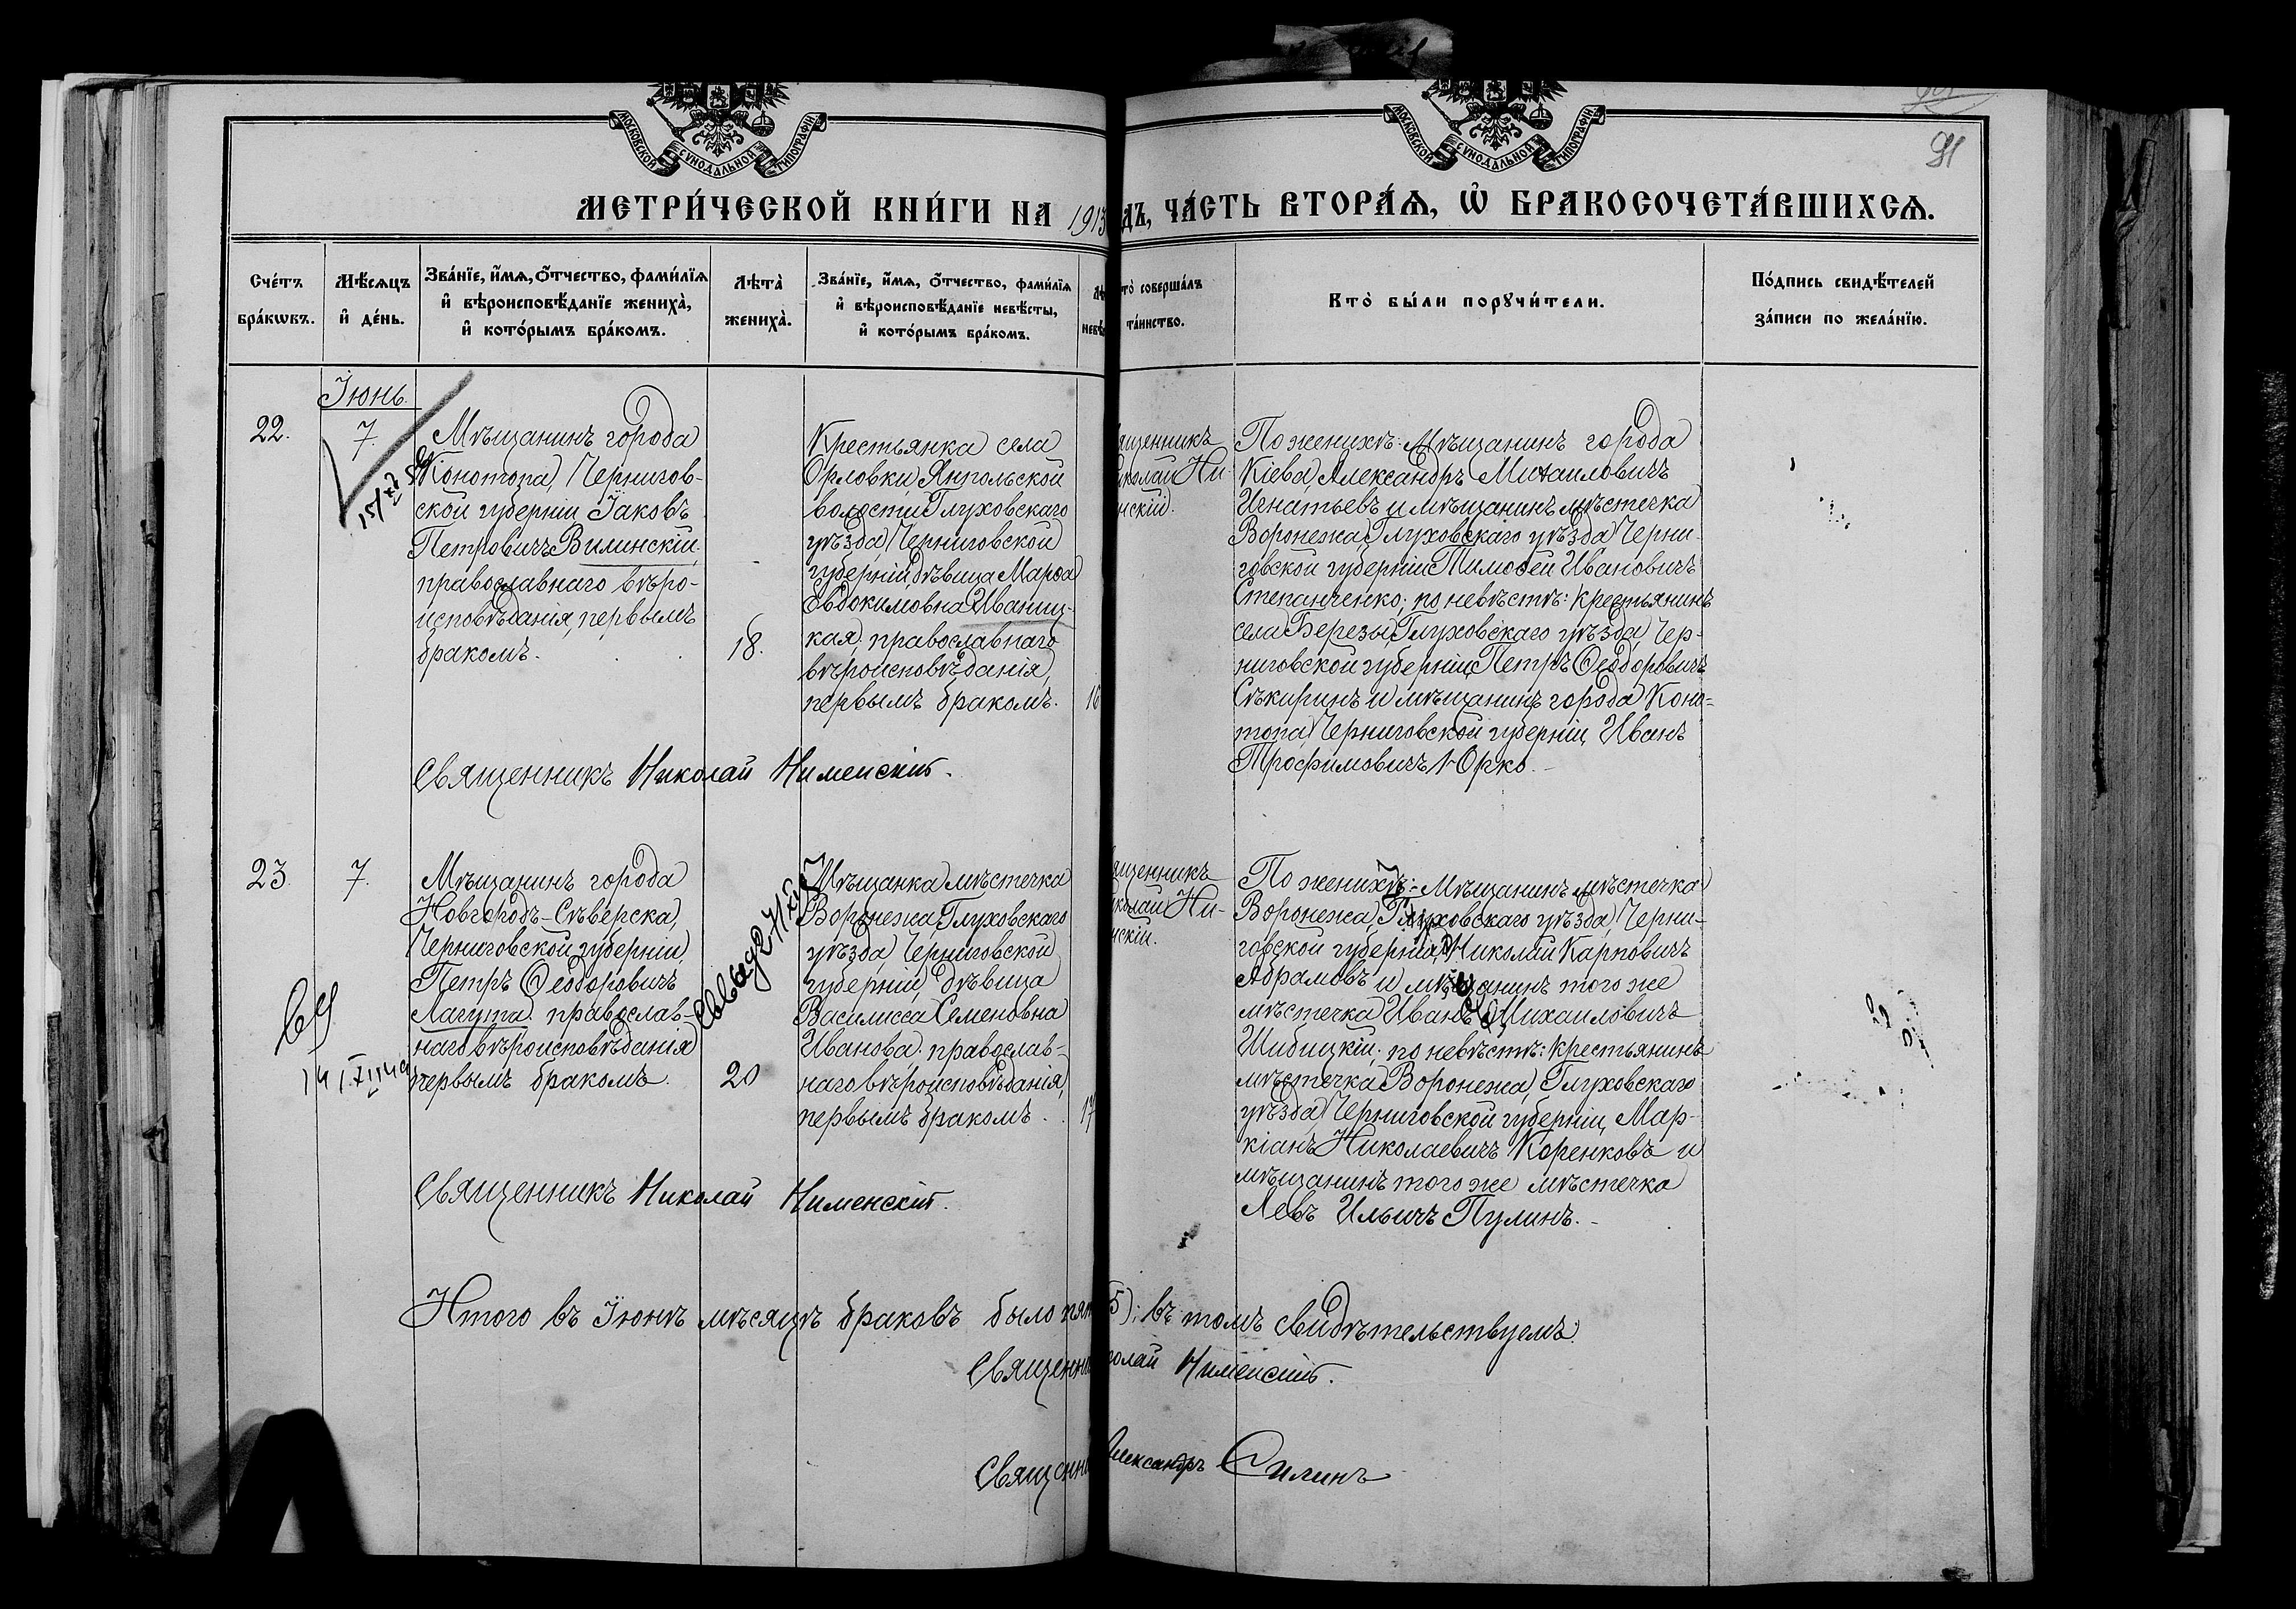 МОСКОВСКОЙ СУНОДАЛЬНОЙ ТИПОГРАФІИ
МОСКОВСКОЙ СУНОДАЛЬНОЙ ТИПОГРАФІИ
91
МЕТРИ́ЧЕСКОЙ КНИ́ГИ НА 1913
ДЪ, ЧА́СТЬ ВТОРА́Ѧ, Ѡ҆ БРАКОСОЧЕТА́ВШИХСѦ.
Сче́тъ
бра́кѡвъ.
Мѣ́сѧцъ
и҆ де́нь.
Зва́нїе, и҆́мѧ, ѻ҆́тчество, фами́лїѧ
и҆ вѣроисповѣ́данїе жениха̀,
и҆ кото́рымъ бра́комъ.
Лѣта̀
жениха̀.
Зва́нїе, и҆́мѧ, ѻ҆́тчество, фами́лїѧ
и҆ вѣроисповѣ́данїе невѣ́сты,
и҆ кото́рымъ бра́комъ.
Лѣ
невѣ
то̀ соверша́лъ
та́инство.
Кто̀ бы́ли порꙋчи́тели.
По́дпись свидѣ́телей
за́писи по жела́нїю.
Іюнь.
22.
7.
Мѣщанинъ города
Конотопа, Чернигов-
ской губерніи Іаковъ
Петровичъ Вилинскій.
православнаго вѣро-
исповѣданія, первымъ
бракомъ.
18.
Крестьянка села
Орловки, Янпольской
волости Глуховскаго
уѣзда Черниговской
губерніи дѣвица Марѳа
Евдокимовна Иваниц-
кая, православнаго
вѣроисповѣданія,
первымъ бракомъ.
16
ященникъ
иколай Ни-
нскій.
По женихѣ: Мѣщанинъ города
Кіева, Александръ Михаиловичъ
Игнатьевъ и мѣщанинъ мѣстечка
Воронежа, Глуховскаго уѣзда Черни-
говской губерніи Тимоѳей Ивановичъ
Степанченко; по невѣстѣ: крестьянинъ
села Березы, Глуховскаго уѣзда, Чер-
ниговской губерніи, Петръ Ѳеодоровичъ
Сѣкиринъ и мѣщанинъ города Коно-
топа, Черниговской губерніи, Иванъ
Трофимовичъ Юрко.
Священникъ Николай Нименскій.
23
7.
Мѣщанинъ города
Новгородъ-Сѣверска,
Черниговской губерніи,
Петръ Ѳеодоровичъ
Лагута православ-
наго вѣроисповѣданія
первымъ бракомъ.
20
Мѣщанка мѣстечка
Воронежа, Глуховскаго
уѣзда Черниговской
губерніи, дѣвица
Василисса Семеновна
Иванова. православ-
наго вѣроисповѣданія,
первымъ бракомъ.
17
ященникъ
иколай Ни-
нскій.
По женихѣ: Мѣщанинъ мѣстечка
Воронежа, Глуховскаго уѣзда, Черни-
говской губерніи, Николай Карповичъ
Абрамовъ и мѣщанинъ того же
мѣстечка Иванъ Михаиловичъ
Шибицкій; по невѣстѣ: крестьянинъ
мѣстечка Воронежа, Глуховскаго
уѣзда, Черниговской губерніи, Мар-
кіанъ Николаевичъ Коренковъ и
мѣщанинъ того же мѣстечка
Левъ Ильичъ Пулинъ.
Священникъ Николай Нименскій.
Итого въ Іюнѣ мѣсяцѣ браковъ было пят 5); въ томъ свидѣтельствуемъ.
Священни олай Нименскій.
Священни лександръ Силинъ